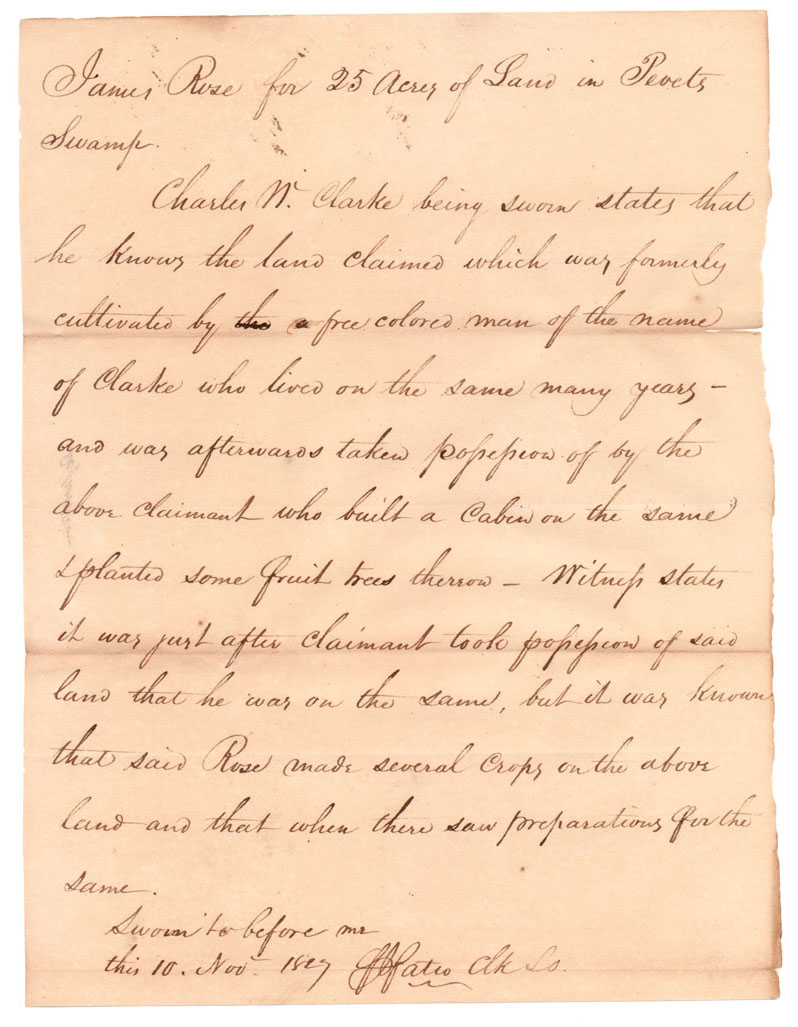 James Rose for 25 Acres of Land in Pevets
Swamp.
Charles W. Clarke being sworn states that
he knows the land claimed which was formerly
cultivated by the a free colored man of the name
of Clarke who lived on the same many years –
and was afterwards taken possession of by the
above claimant who built a Cabin on the same
& planted some fruit trees therron – Witness states
it was just after claimant took possession of said
land that he was on the same, but it was known
that said Rose made several crops on the above
land and that when there saw preparations for the
same.
Sworn to before me
this 10. Novr. 1827 Clk